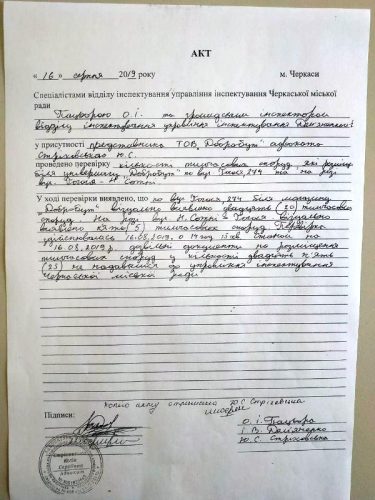 АКТ
« 16 » серпня 2019 року м. Черкаси
Спеціалістами відділу інспектування управління інспектування Черкаської міської
ради
О.І. та громадським інспектором
відділу інспектування управління інспектування
у присутності представника ТОВ „Добробут" адвоката
Стріховської Ю.С.
проведено перевірку кількості тимчасових споруд, які
біля універмагу „Добробут" по вул. Гоголя, 274 та на розі
вул. Гоголя - Н. Сотні
У ході перевірки виявлено, що по вул. Гоголя, 274 біля магазину
„Добробут" візуально виявлено двадцять (20) тимчасових
споруд. На розі вул. Н. Сотні - Гоголя візуально
виявлено п'ять (5) тимчасових споруд. Перевірка
здійснювалась 16.08.2019 о 14 год 15 хв. Станом на
16.08.2019 р. дозвільні документи на розміщення
тимчасових споруд у кількості двадцять п'ять
(25) не надавались до управління інспектування
Черкаської міської ради
копію акту отримала Ю.С. Стріховська
Підписи:
О.І.
І.В.
Ю.С. Стріховська